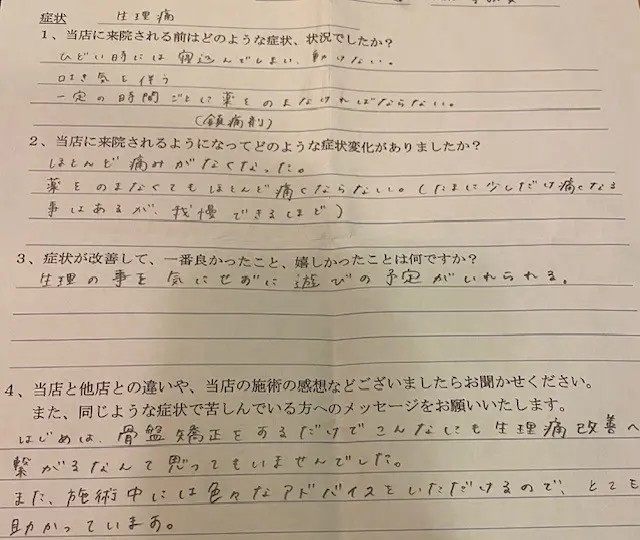 症状 生理痛
1、当店に来院される前はどのような症状、状況でしたか?
ひどい時には寝込んでしまい、動けない。
吐き気を伴う
一定の時間ごとに薬をのまなければならない。
(鎮痛剤)
2、当店に来院されるようになってどのような症状変化がありましたか?
ほとんど痛みがなくなった。
薬をのまなくてもほとんど痛くならない。(たまに少しだけ痛くなる
事はあるが、我慢できるほど)
3、症状が改善して、一番良かったこと、嬉しかったことは何ですか?
生理の事を気にせずに遊びの予定がいれられる。
4、当店と他店との違いや、当店の施術の感想などございましたらお聞かせください。
また、同じような症状で苦しんでいる方へのメッセージをお願いいたします。
はじめは、骨盤矯正をするだけでこんなにも生理痛改善へ
繋がるなんて思ってもいませんでした。
また、施術中には色々なアドバイスをいただけるので、とても
助かっています。